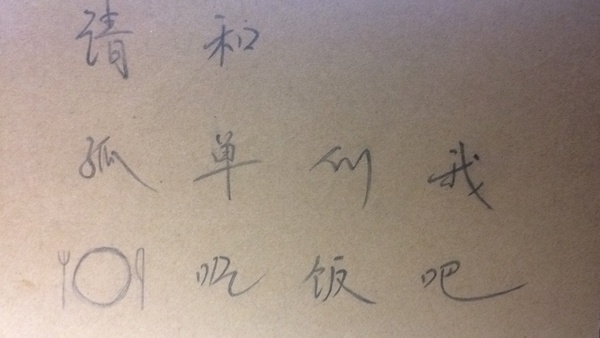 请和
孤单们我
吃饭吧